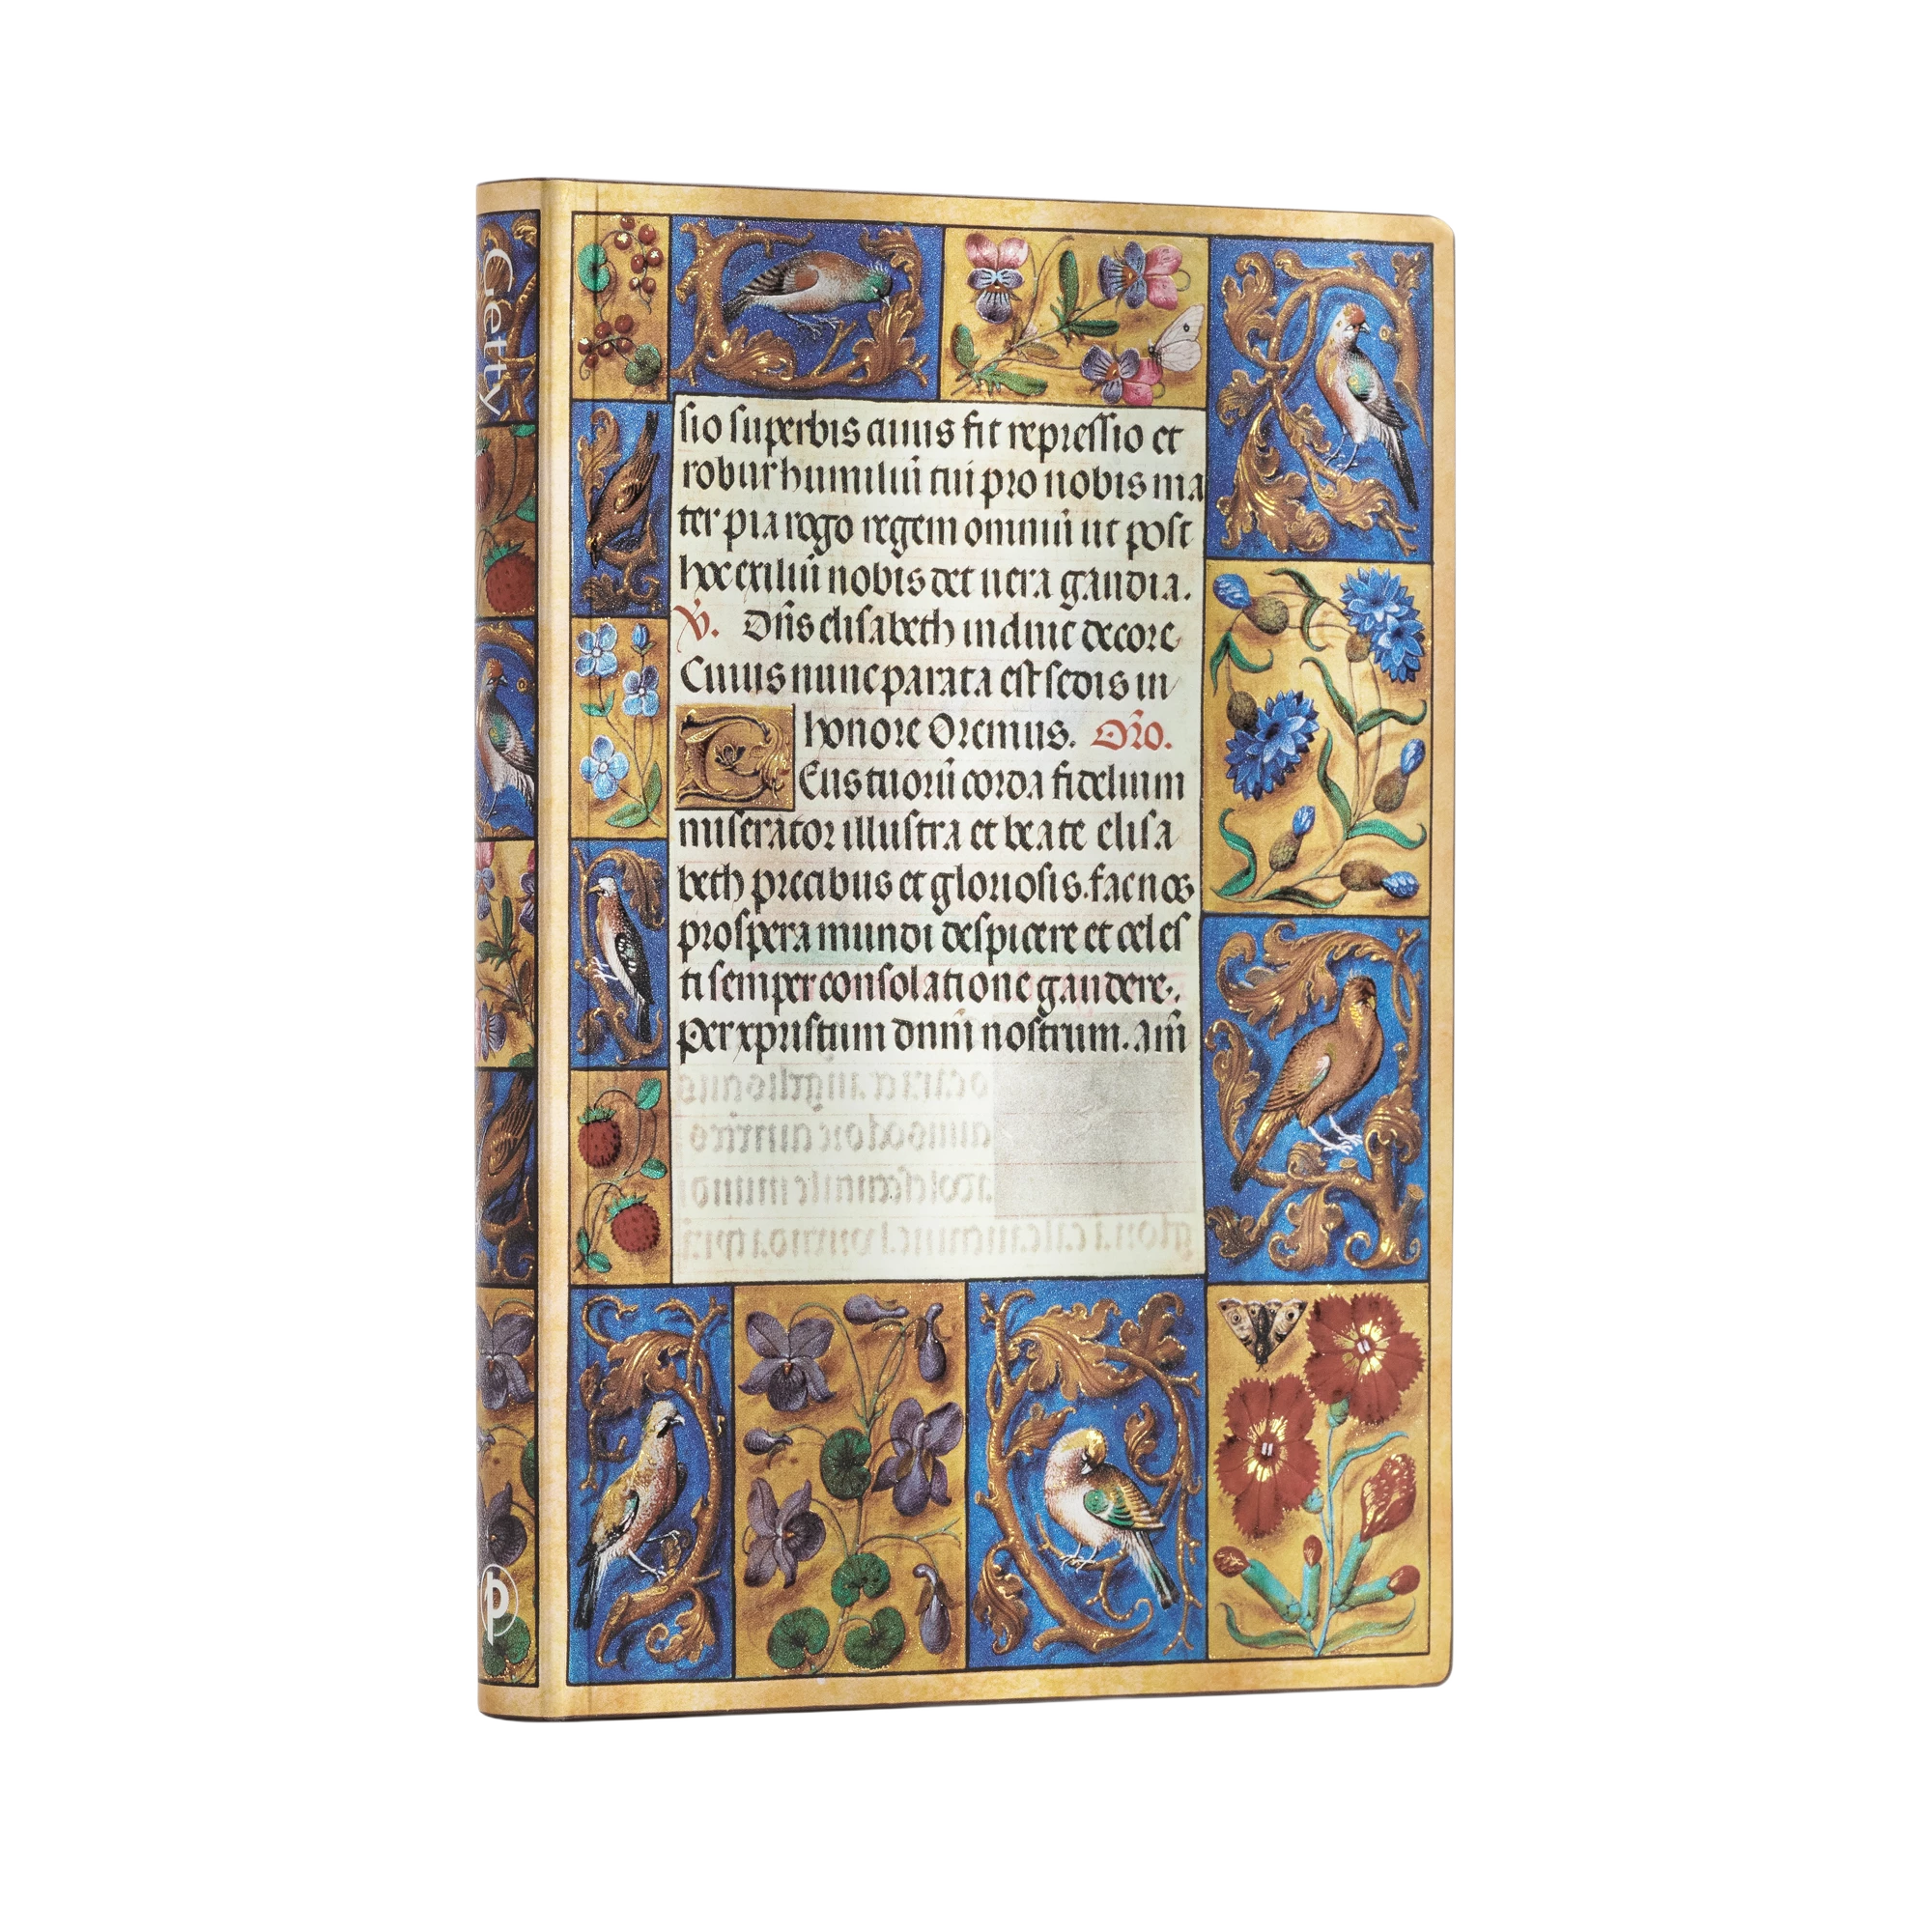 Getty
sio superbis cuius fit repressio et
robur humiliũ tui pro nobis ma
ter pia rogo regem omniũ ut post
hoc exiliũ nobis det uera gaudia.
V̇. Dñs elisabeth induit decore
Cuius nunc parata est sedis in
honore Oremus. Orõ.
Deus tuorũ corda fidelium
miserator illustra et beate elisa
beth precibus et gloriosis. fac nos
prospera mundi despicere et celes
ti semper consolatione gaudere.
Per xpristum dnm̃ nostrum. am̃